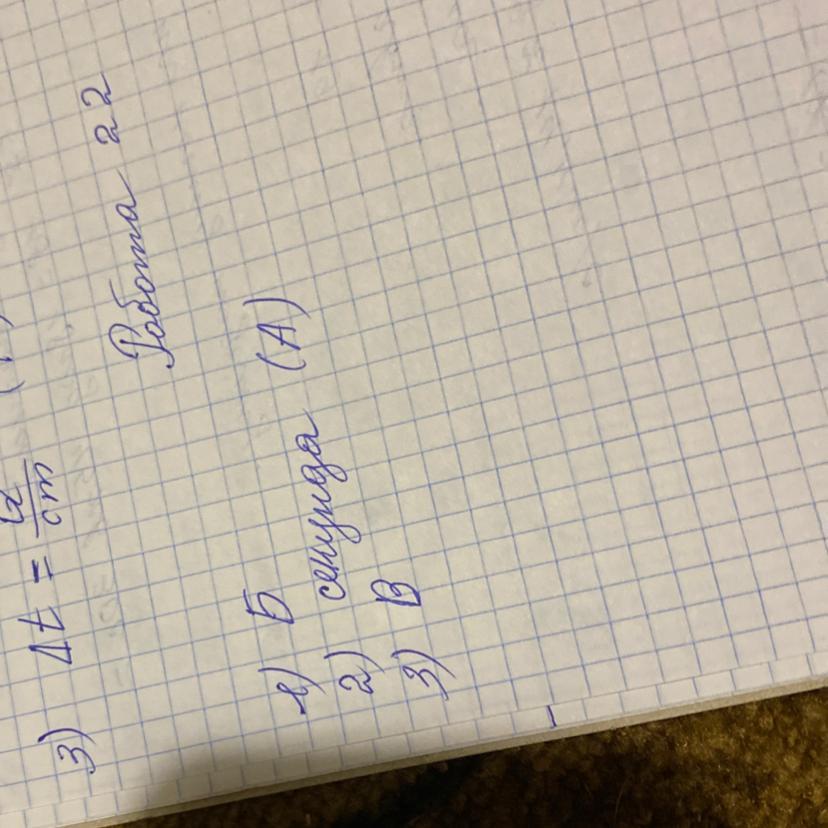 3) Δt = Q/cm
Работа 22
1) Б
2) секунда (А)
3) В